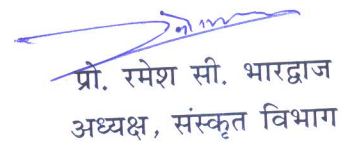 प्रो. रमेश सी. भारद्वाज
अध्यक्ष, संस्कृत विभाग